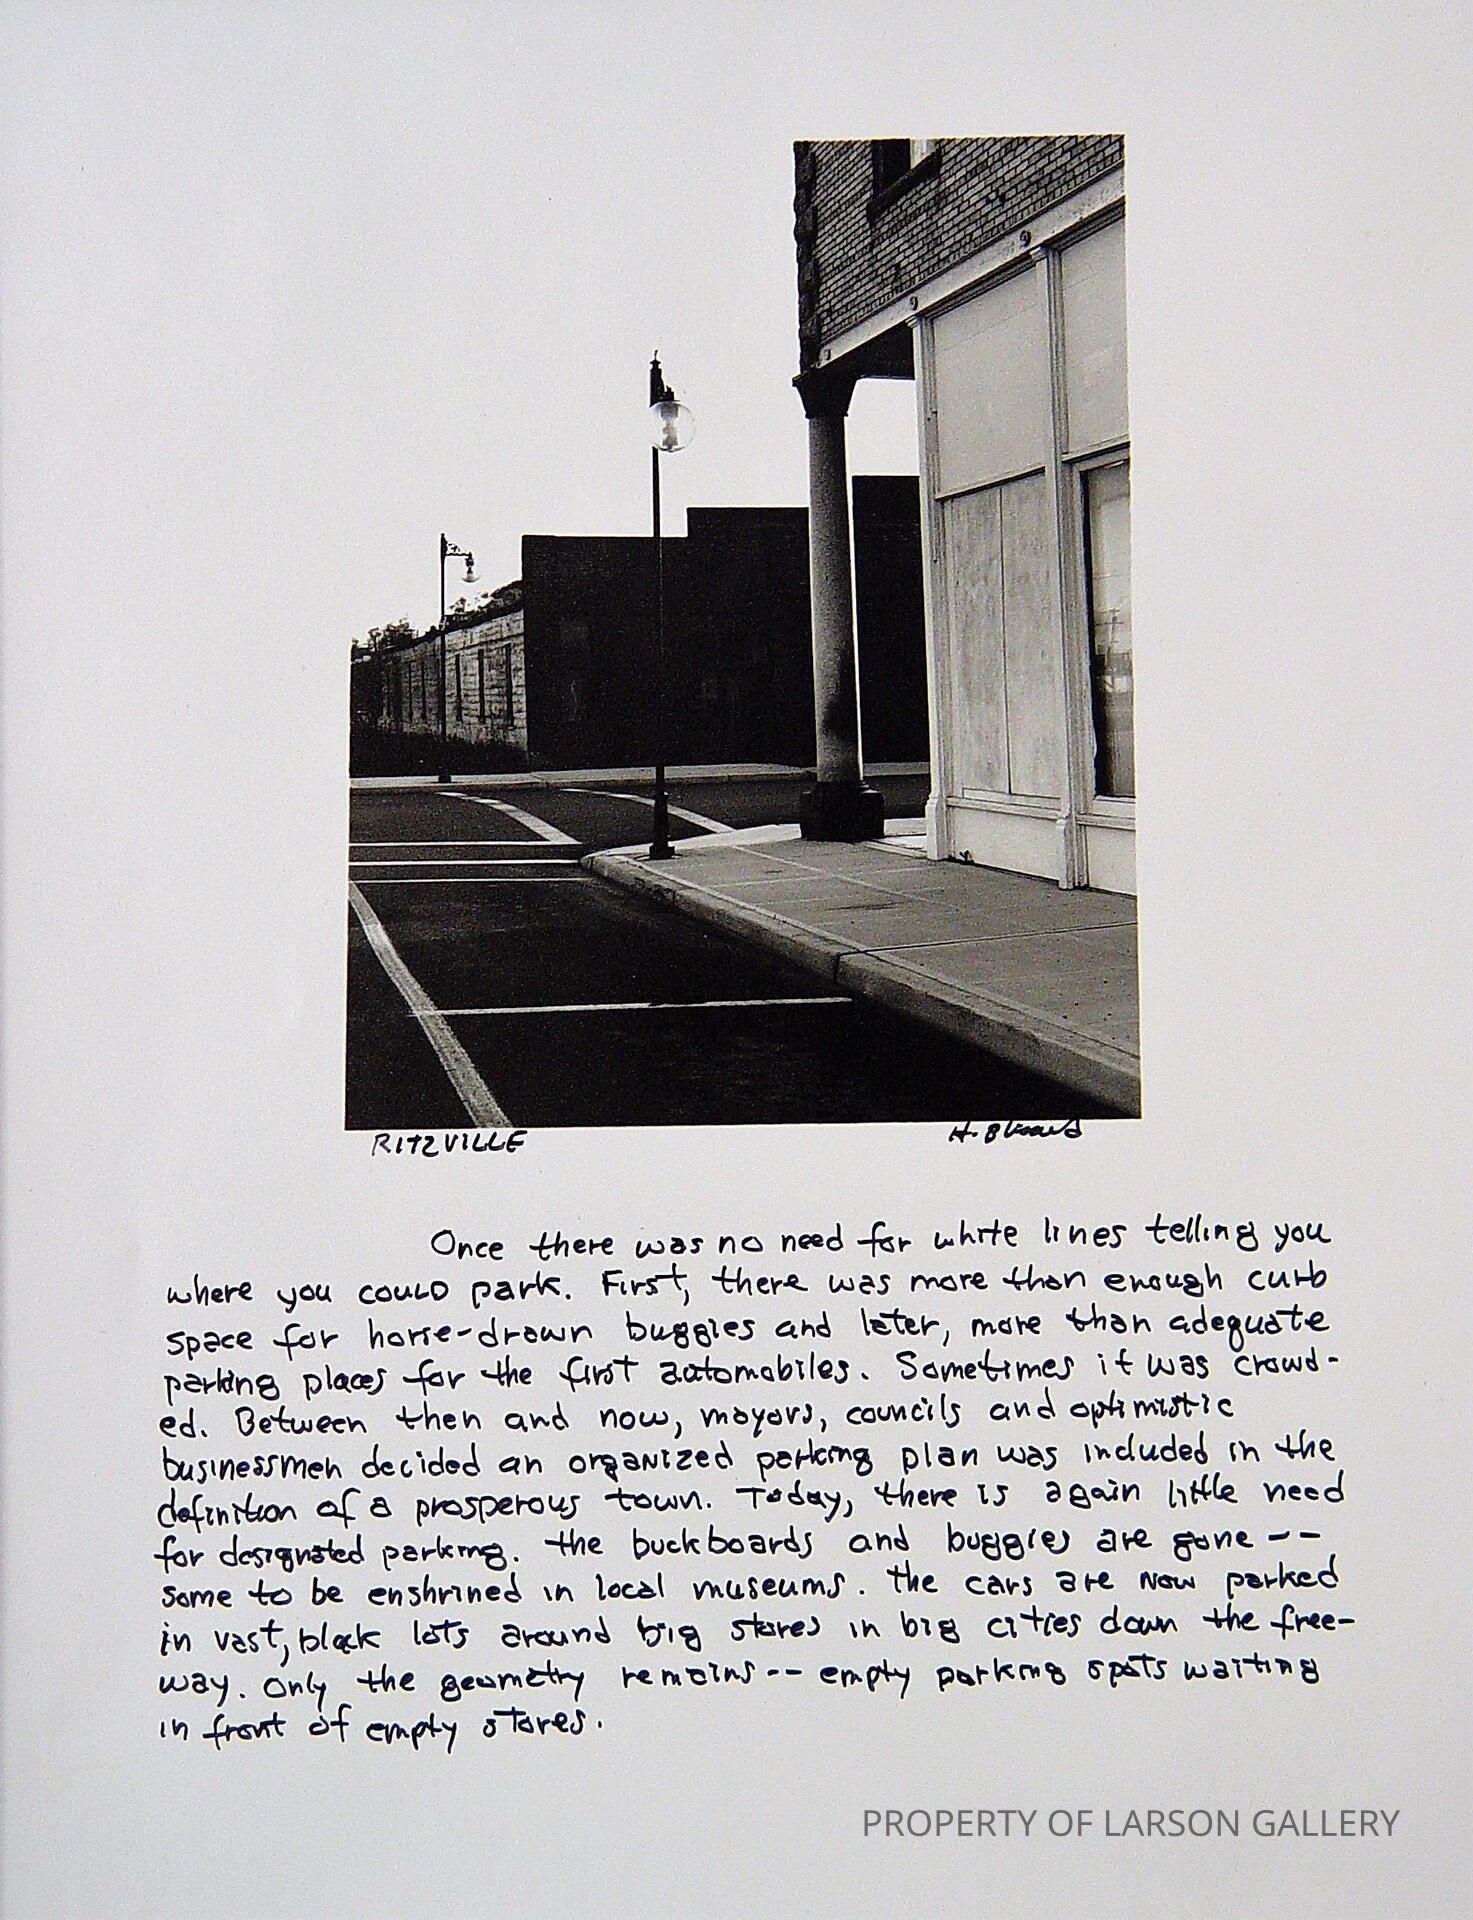 RITZVILLE
Once there was no need for white lines telling you
where you could park. First, there was more than enough curb
space for horse-drawn buggies and later, more than adequate
parking places for the first automobiles. Sometimes it was crowd-
ed. Between then and now, mayors, councils and optimistic
businessmen decided an organized parking plan was included in the
definition of a prosperous town. Today, there is again little need
for designated parking. The buckboards and buggies are gone --
some to be enshrined in local museums. The cars are now parked
in vast, black lots around big stores in big cities down the free-
way. Only the geometry remains -- empty parking spots waiting
in front of empty stores.
PROPERTY OF LARSON GALLERY